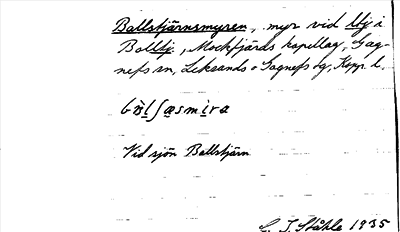 Ballstjärnsmyren, myr vid lbj i
Balltj, Mockfjärds kapellag, Gag-
nefs sn, Leksands o Gagnefs tg, Kopp. l.
Vid sjön Ballstjärn
C. I. Ståhle 1935